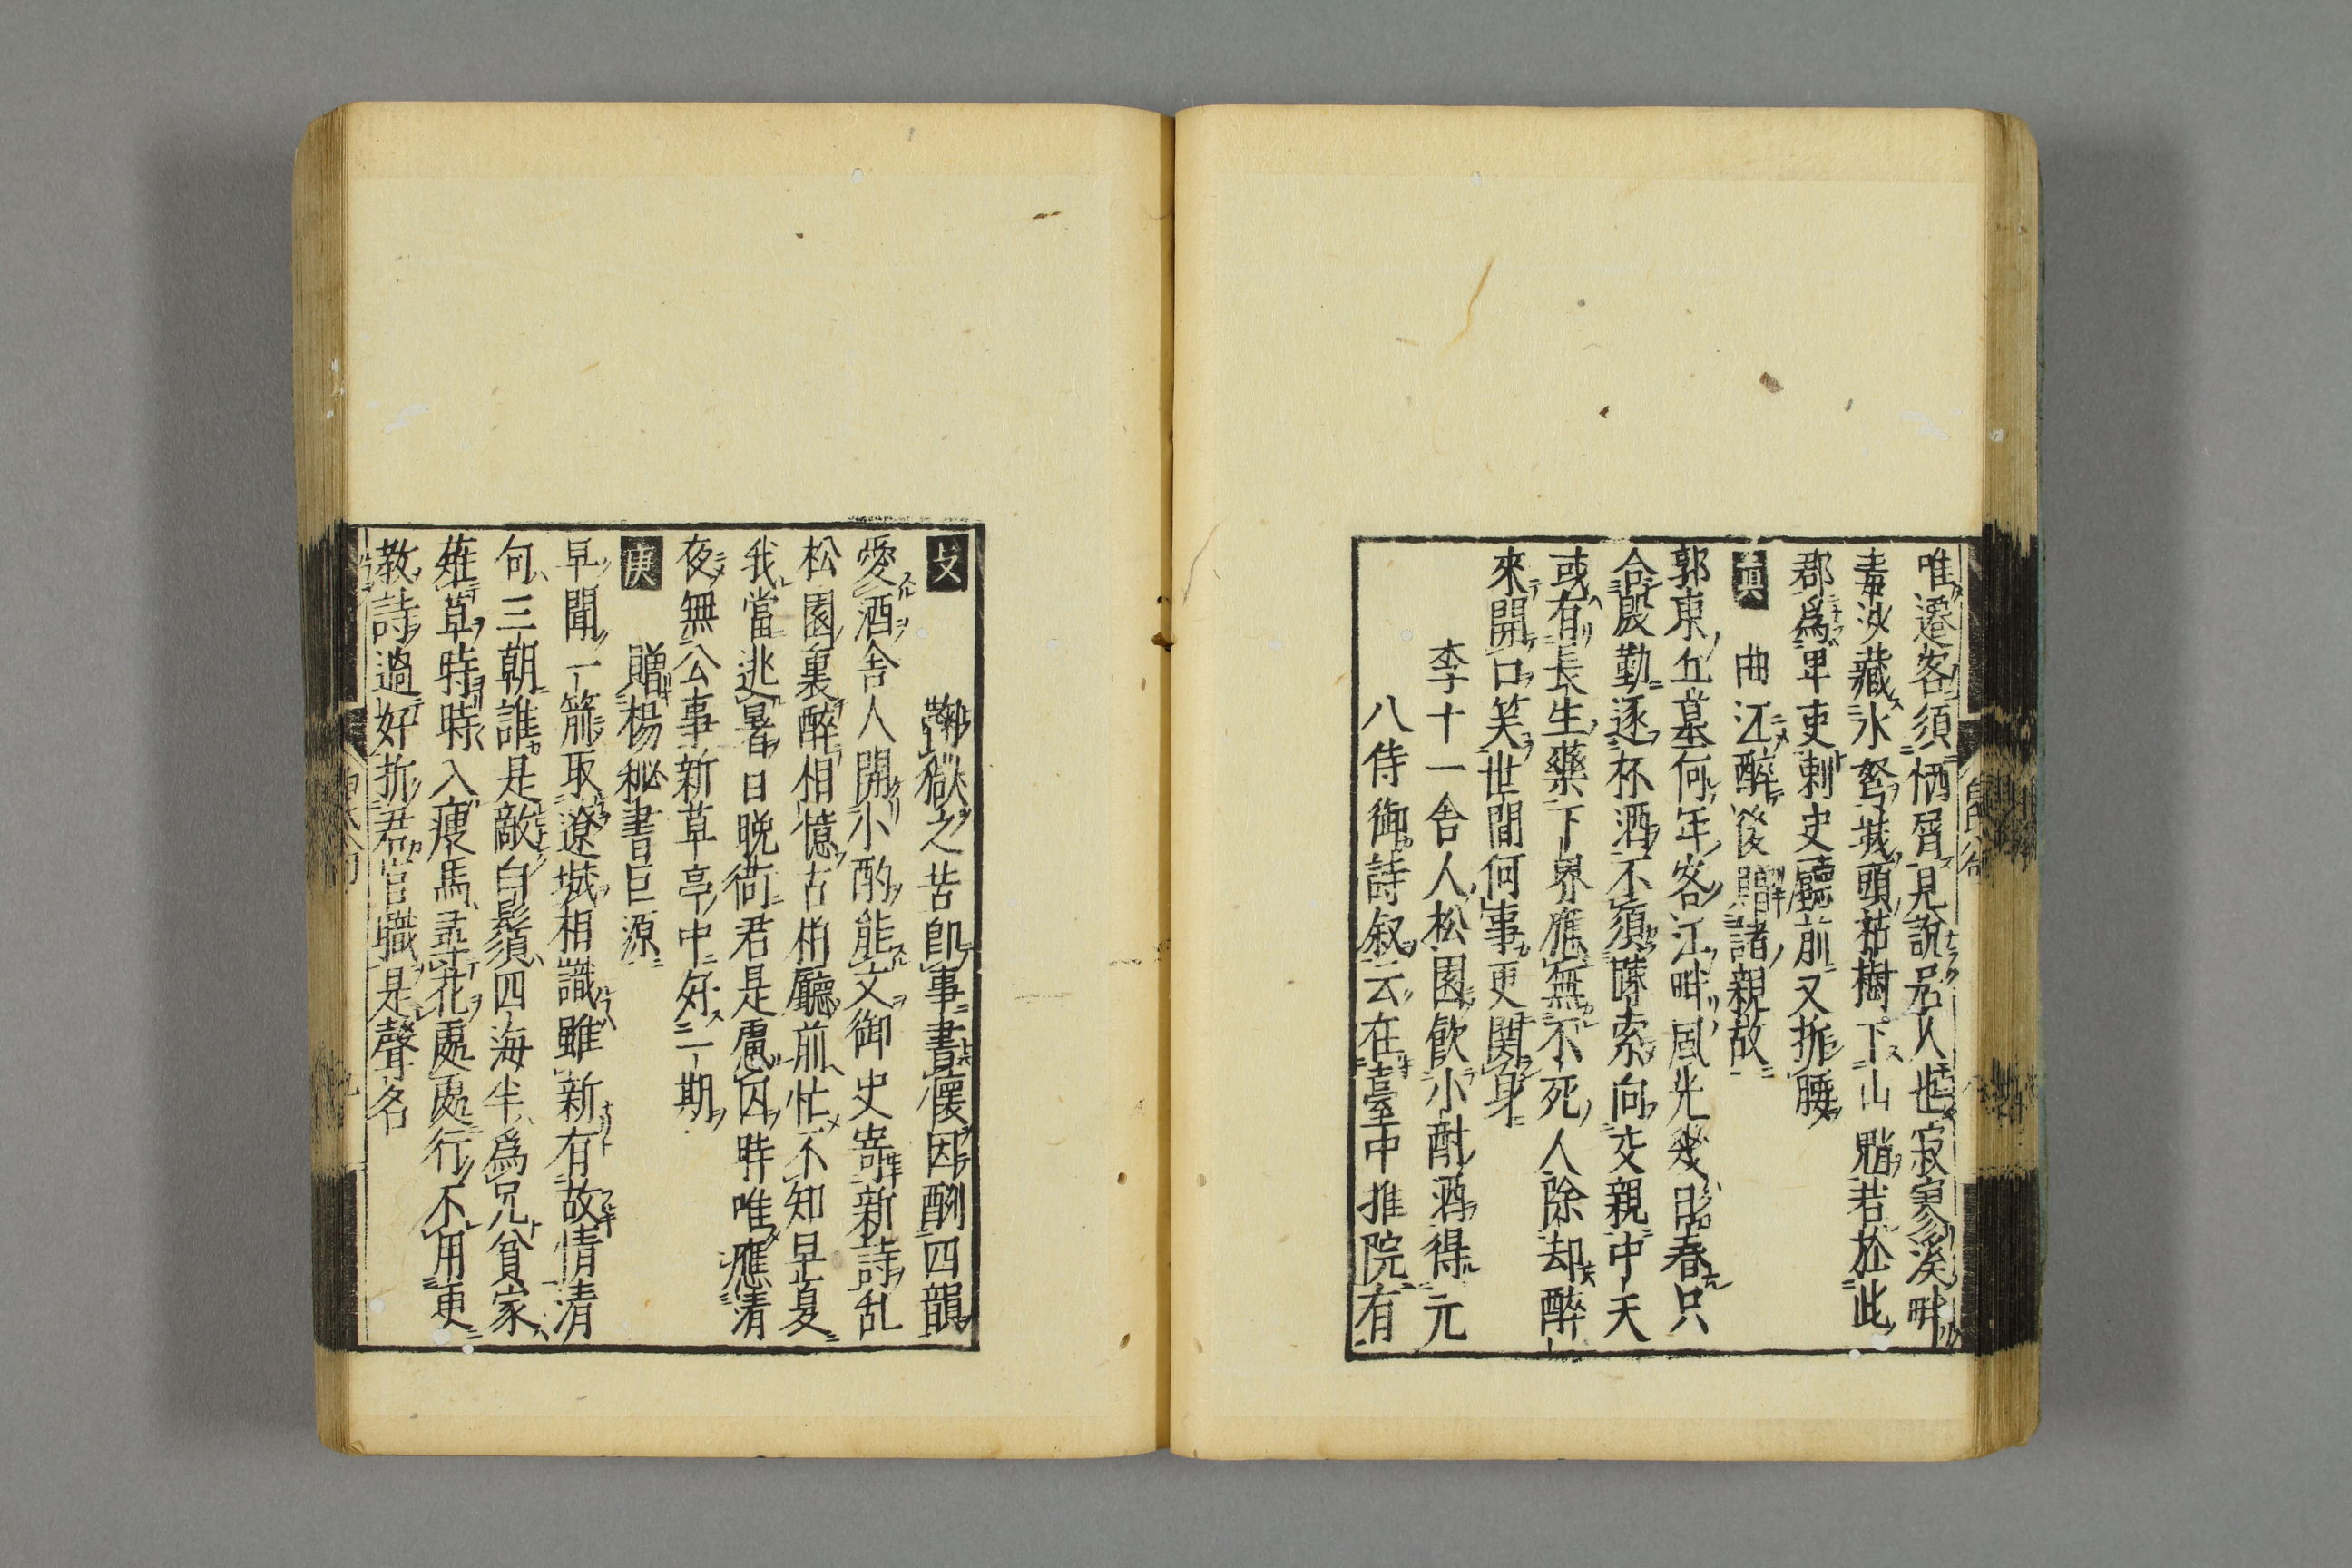 唯遷客須恓屑見說居人也寂寞溪畔
毒沙藏水弩城頭枯樹下山魈若於此
郡爲卑吏剌史廳前又折腰
真 曲江醉後贈諸親故
郭東丘墓何年客江畔風光幾日春只
合殷勤逐杯酒不須疎索向交親中天
或有長生藥下界應無不死人除却醉
來開口笑世間何事更関身
李十一舍人松園飲小酎酒得元
八侍御詩叙云在臺中推院有
支 鞫獄之苦即事書懐因酬四韻
愛酒舍人開小酌能文御史寄新詩乱
松園裏醉相憶古栢廳前忙不知早夏
我當逃暑日晚衙君是慮囚時唯應清
夜無公事新草亭中好一期
庚 贈楊秘書巨源
早聞一箭取遼城相識雖新有故情清
句三朝誰是敵白鬚四海半爲兄貧家
薙草時時入瘦馬尋花處處行不用更
教詩過好折君官職是聲名